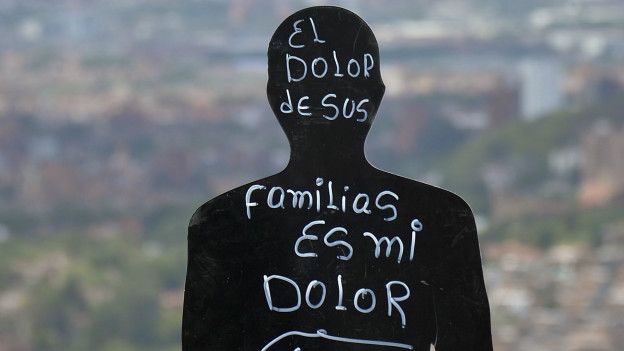 EL
DOLOR
de SUS
Familias
ES mi
DOLOR